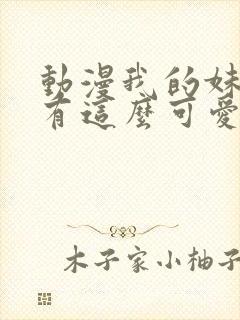 動漫我的妹
有這麼可愛
木子家小柚子